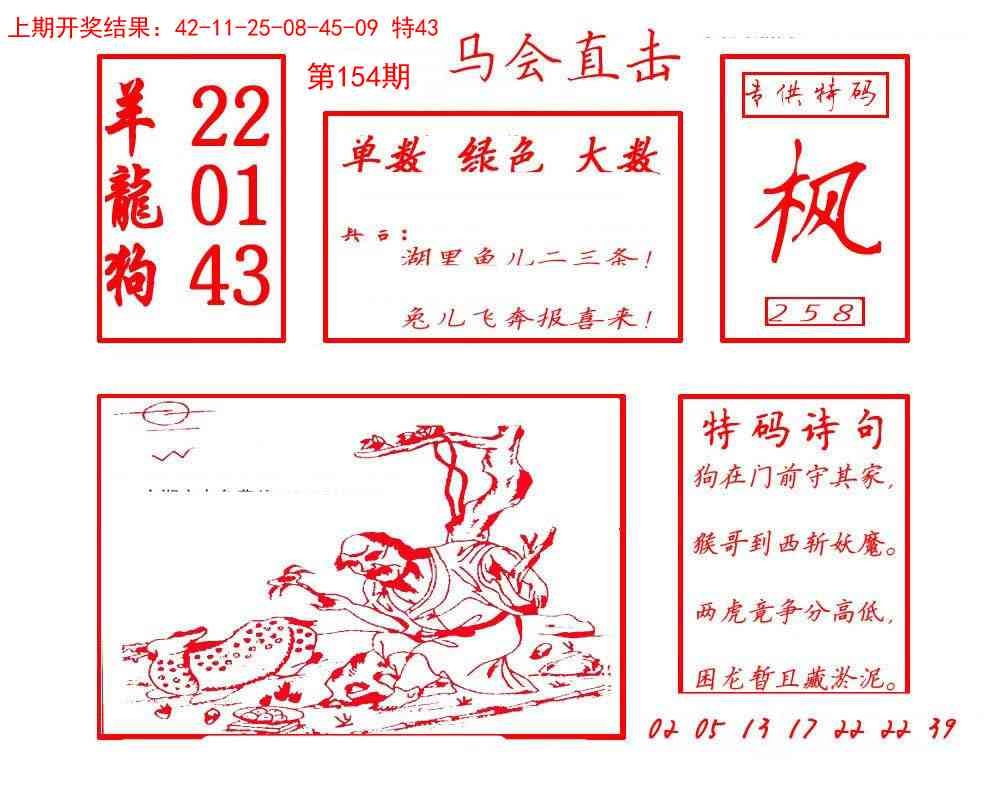 上期开奖结果：42-11-25-08-45-09 特43
第154期
马会直击
羊 22
龍 01
狗 43
单数 绿色 大数
湖里鱼儿二三条！
兔儿飞奔报喜来！
专供特码
枫
258
特码诗句
狗在门前守其家，
猴哥到西斩妖魔。
两虎竟争分高低，
困龙暂且藏淤泥。
02 05 13 17 22 22 39